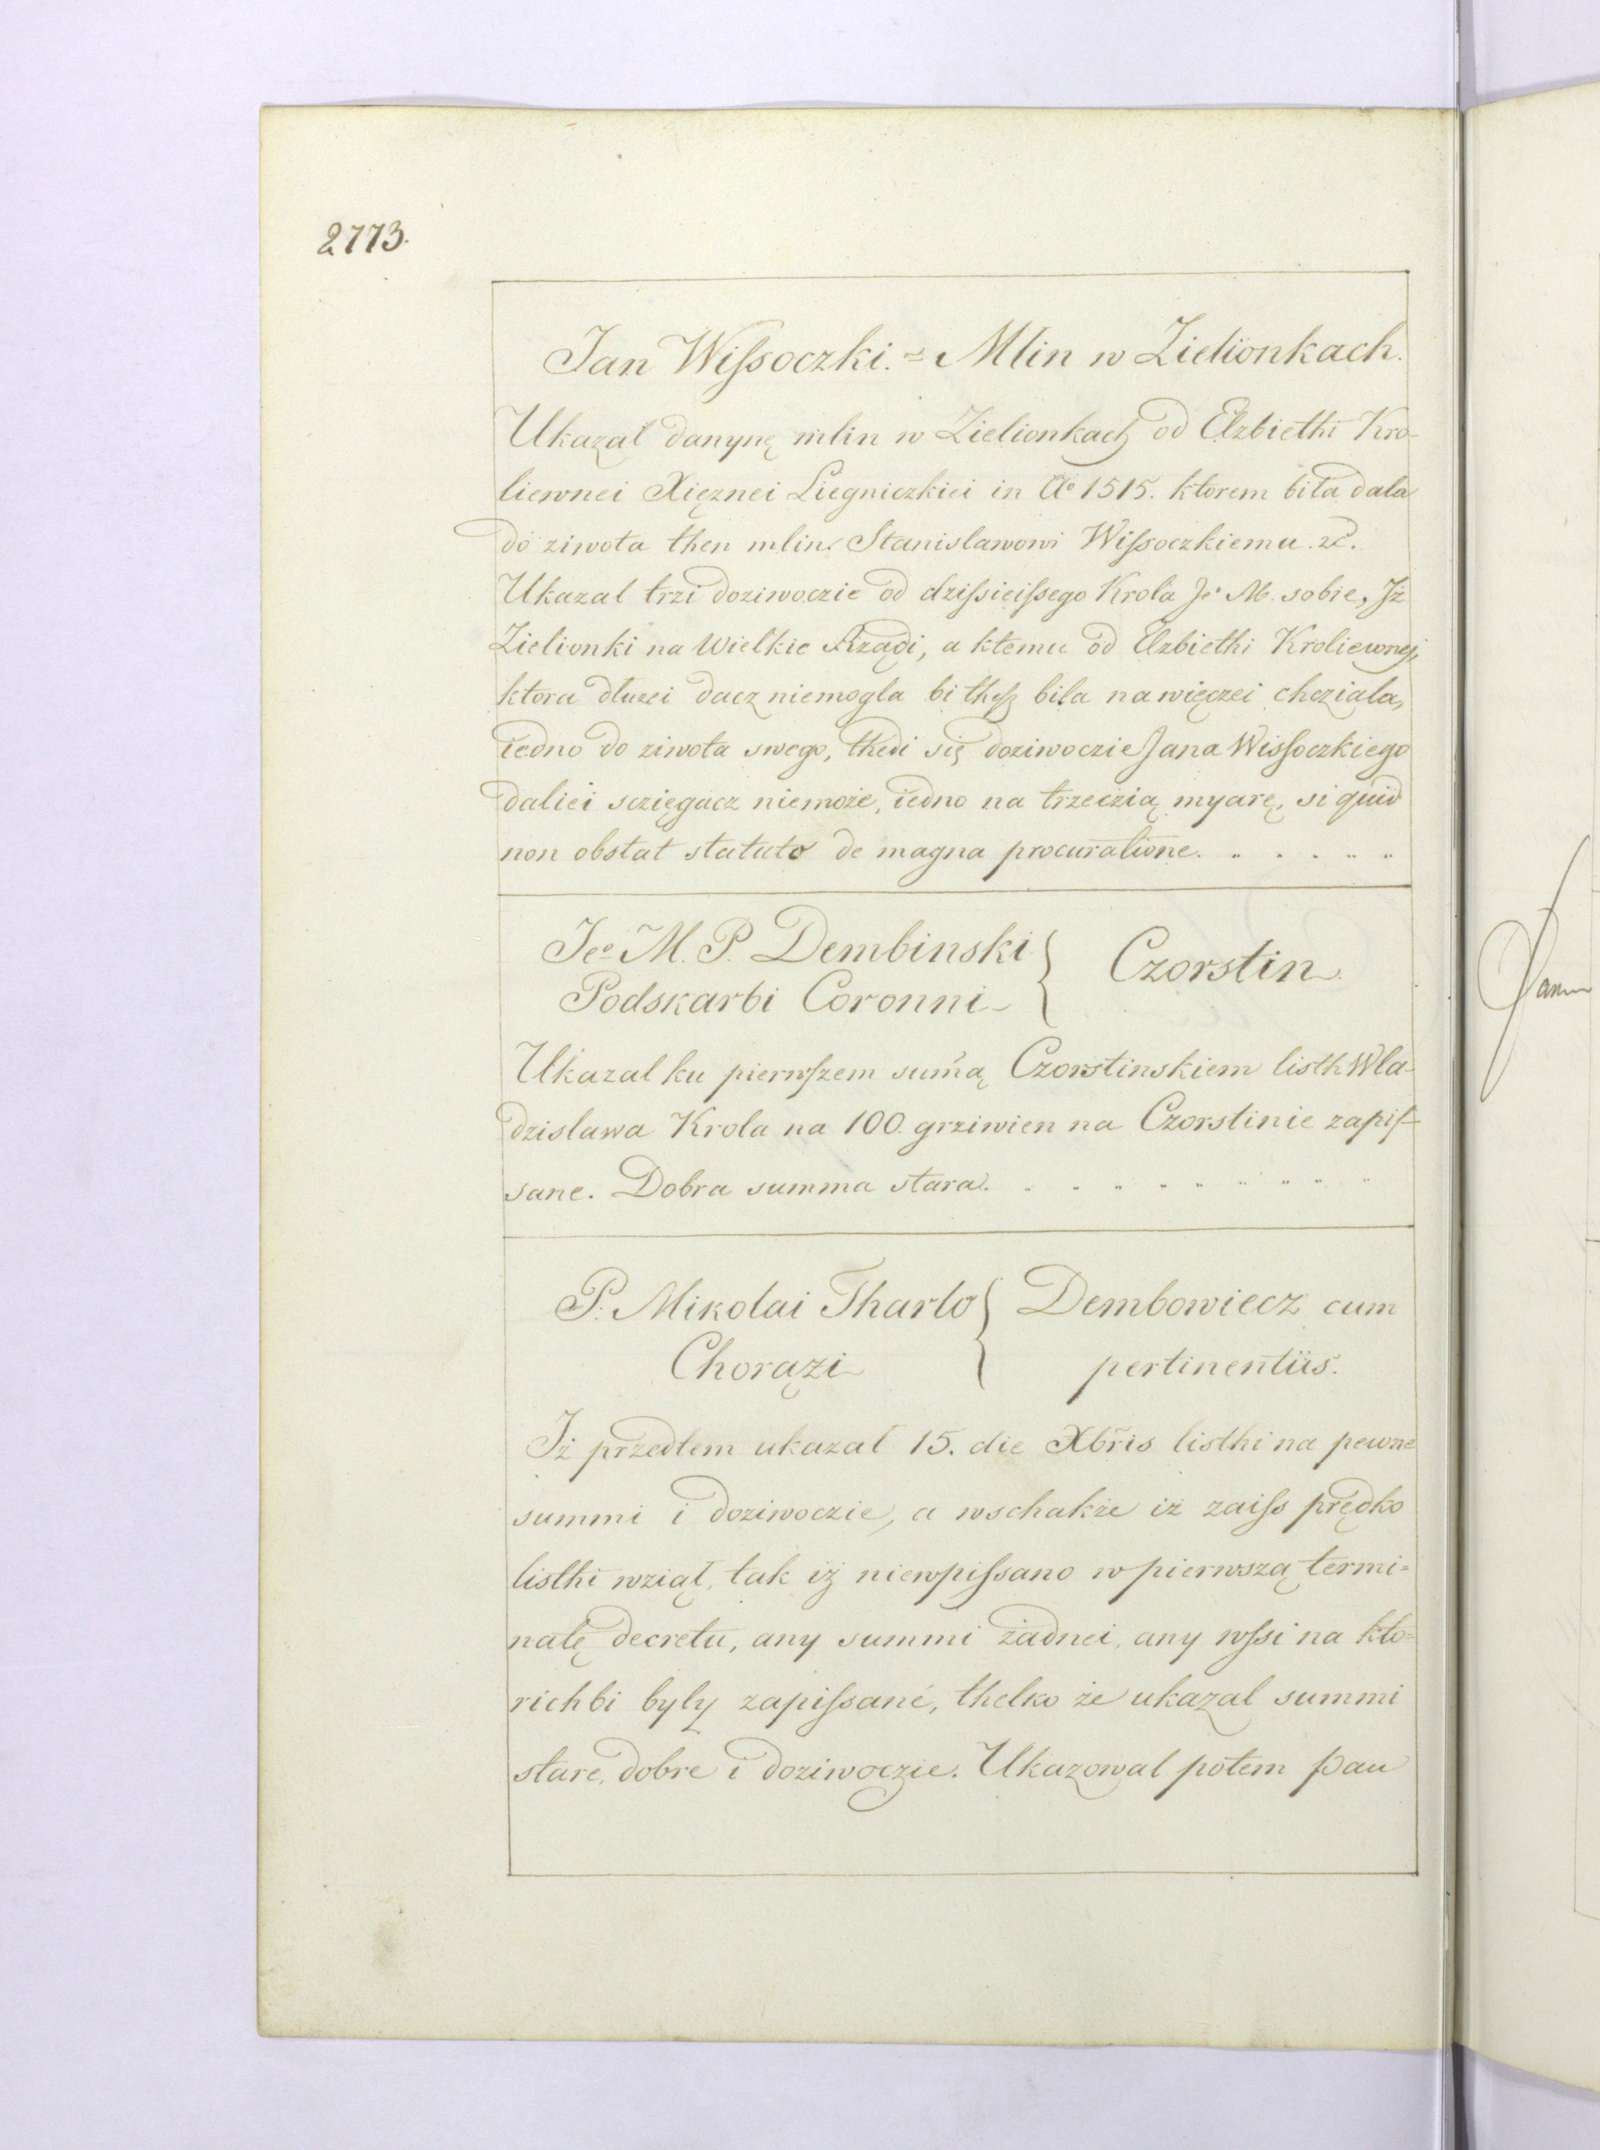 2773.
Jan Wiſsoczki. = Mlin w Zielionkach.
Ukazał danynę mlin w Zielionkach od Elzbiethi Kro-
liewnei Xięznei Liegniczkiei in Aº 1515. ktorem biła dala
do ziwota then mlin Stanislawowi Wiſsoczkiemu. &c.
Ukazal trzi doziwoczie od dziſsieiſsego Krola Jº M. sobie, Jż
Zielionki na Wielkie Rządi, a ktemu od Elzbietki Kroliewnej,
ktora dłuzei dacz niemogla bi theſz biła nawięczei chcziała,
iedno do ziwota swego, thedi się doziwoczie Jana Wisſoczkiego
daliei sczięgacz niemoże, iedno na trzeczią myarę, si quid
non obstat statuto de magna procuratione.
Jeº M. P. Dembinski
Podskarbi Coronni
Czorstin.
Ukazal ku pierwſzem sum̄ą Czorstinskiem listh Wla-
dzislawa Krola na 100 grziwien na Czorstinie zapiſ-
sane. Dobra summa stara.
P. Mikolai Tharlo
Chorązi
Dembowiecz cum
pertinentiis.
Iż przedtem ukazał 15. die Xbris listhi na pewne
summi i doziwoczie, a wschakże iż zaiſs prędko
listhi wziął, tak iż niewpiſsano w pierwszą termi=
natę decretu, any summi żadnei, any wſsi na kto=
richbi były zapiſsané, thelko że ukazal summi
stare, dobre i doziwoczie. Ukazowal potem pan